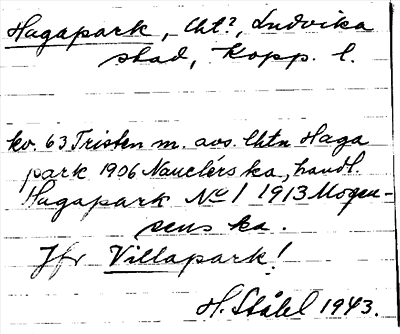 Hagapark, lht?, Ludvika
stad, Kopp. l.
kv. 63 Tristen m. avs. lhtn Haga
park 1906 Nauclérs ka, handl.
Hagapark No 1 1913 Mogen-
sens ka.
Jfr Villapark!
H. Ståhl 1943.